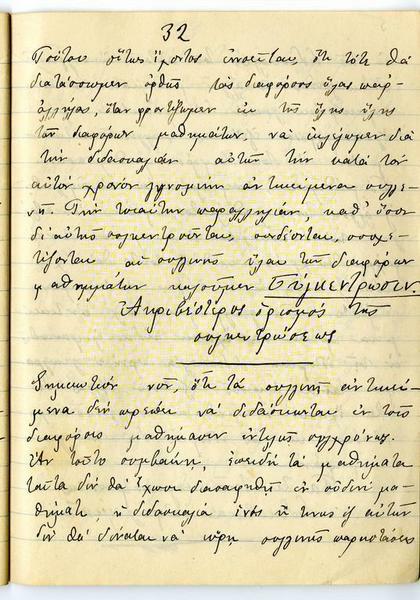 32
Τούτου οὕτως ἔχοντος ἐννοεῖται, ὅτι τότε θὰ
διατάσσωμεν ὀρθῶς τὰς διαφόρους ὕλας παρ-
αλλήλως, ὅταν φροντίζωμεν ἐκ τῆς ὅλης ὕλης
τῶν διαφόρων μαθημάτων, νὰ ἐκλέγωμεν διὰ
τὴν διδασκαλίαν αὐτῶν τὴν κατὰ τὸν
αὐτὸν χρόνον γιγνομένην ἀντικείμενα συγγε-
νῆ. Τὴν τοιαύτην παραλληλίαν, καθ' ὅσον
δι' αὐτῆς συγκεντροῦνται, συνδέονται, συσχε-
τίζονται αἱ συγγενεῖς ὗλαι τῶν διαφόρων
μαθημάτων καλοῦμεν Συγκέντρωσιν.
Ἀκριβέστερος ὁρισμὸς τῆς
συγκεντρώσεως
Σημειωτέον νῦν, ὅτι τὰ συγγενῆ ἀντικεί-
μενα δὲν πρέπει νὰ διδάσκωνται ἐν τοῖς
διαφόροις μαθήμασιν ἐντελῶς συγχρόνως.
Ἂν τοῦτο συμβαίνῃ, ἐπειδὴ τὰ μαθήματα
ταῦτα δὲν θὰ ἔχωσι διασαφηθῆ ἐν οὐδενὶ μα-
θήματι, ἡ διδασκαλία ἑνὸς ἢ τινος ἐξ αὐτῶν
δὲν θὰ δύναται νὰ εὕρῃ συγγενεῖς παραστάσεις